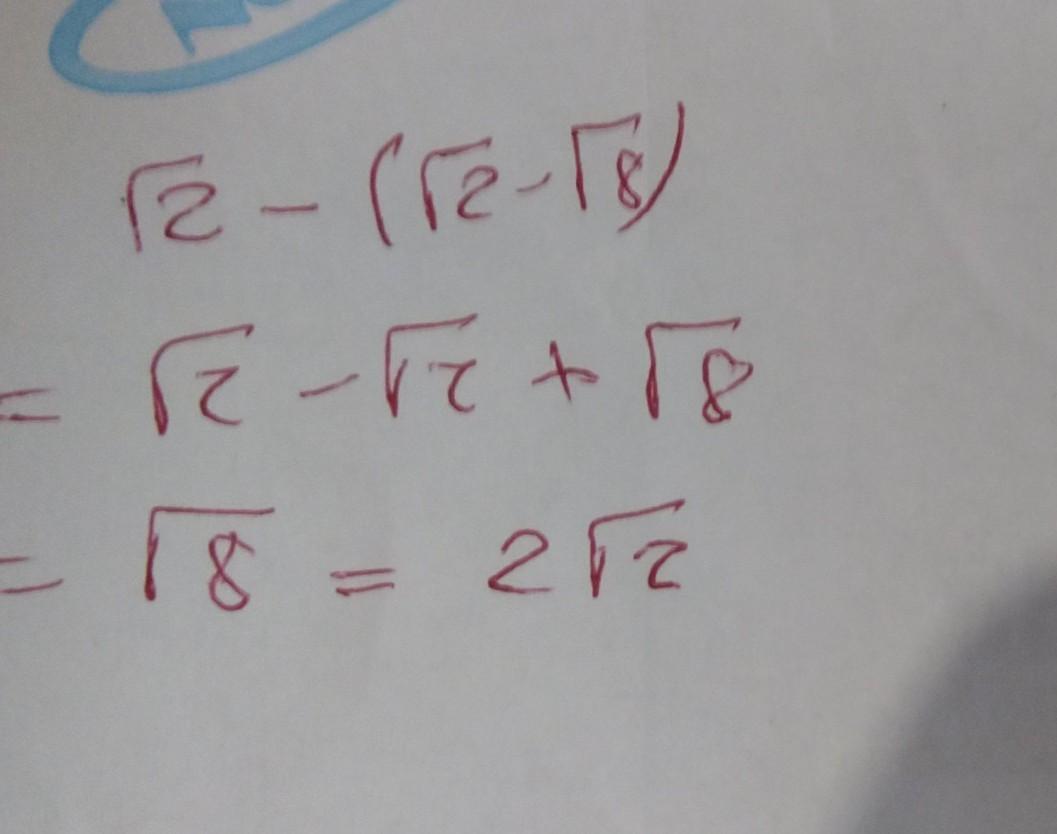 √2 - (√2 - √8)
= √2 - √2 + √8
= √8 = 2√2